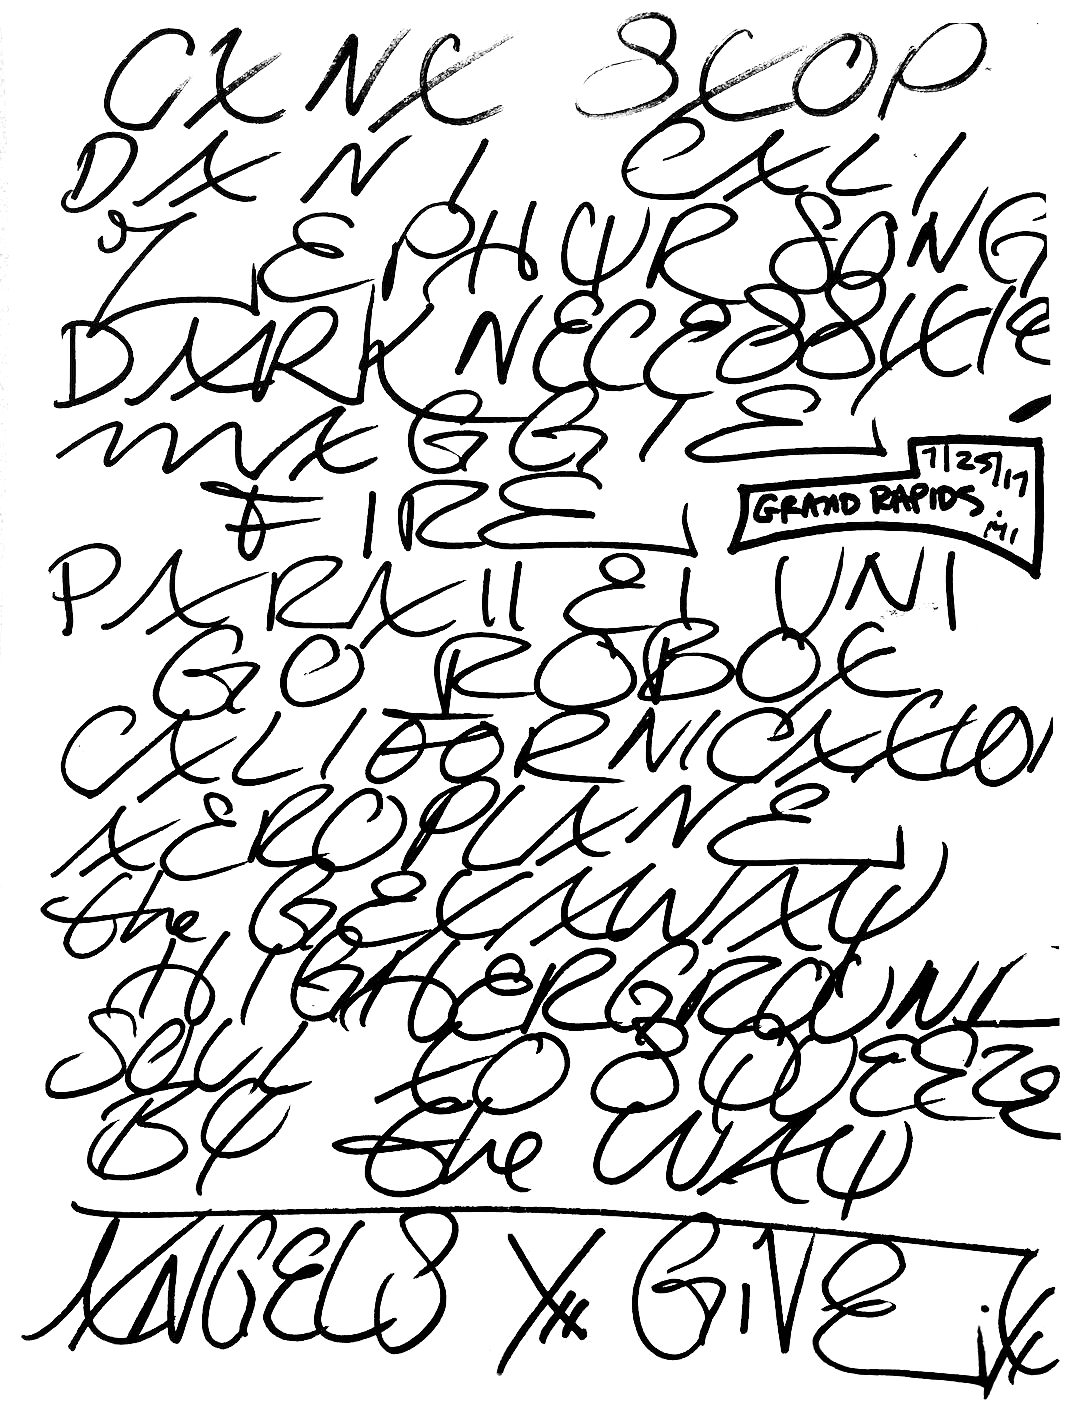 CAN'T STOP
DANI CALI
ZEPHYR SONG
DARK NECESSITIE
MAGGIE
FIRE
7/25/17
GRAND RAPIDS
MI
PARALLEL UNI
GO ROBOT
CALIFORNICATION
AEROPLANE
the GETAWAY
HIGHERGROUND
SOUL TO SQUEEZE
BY the WAY
ANGELS X GIVE it